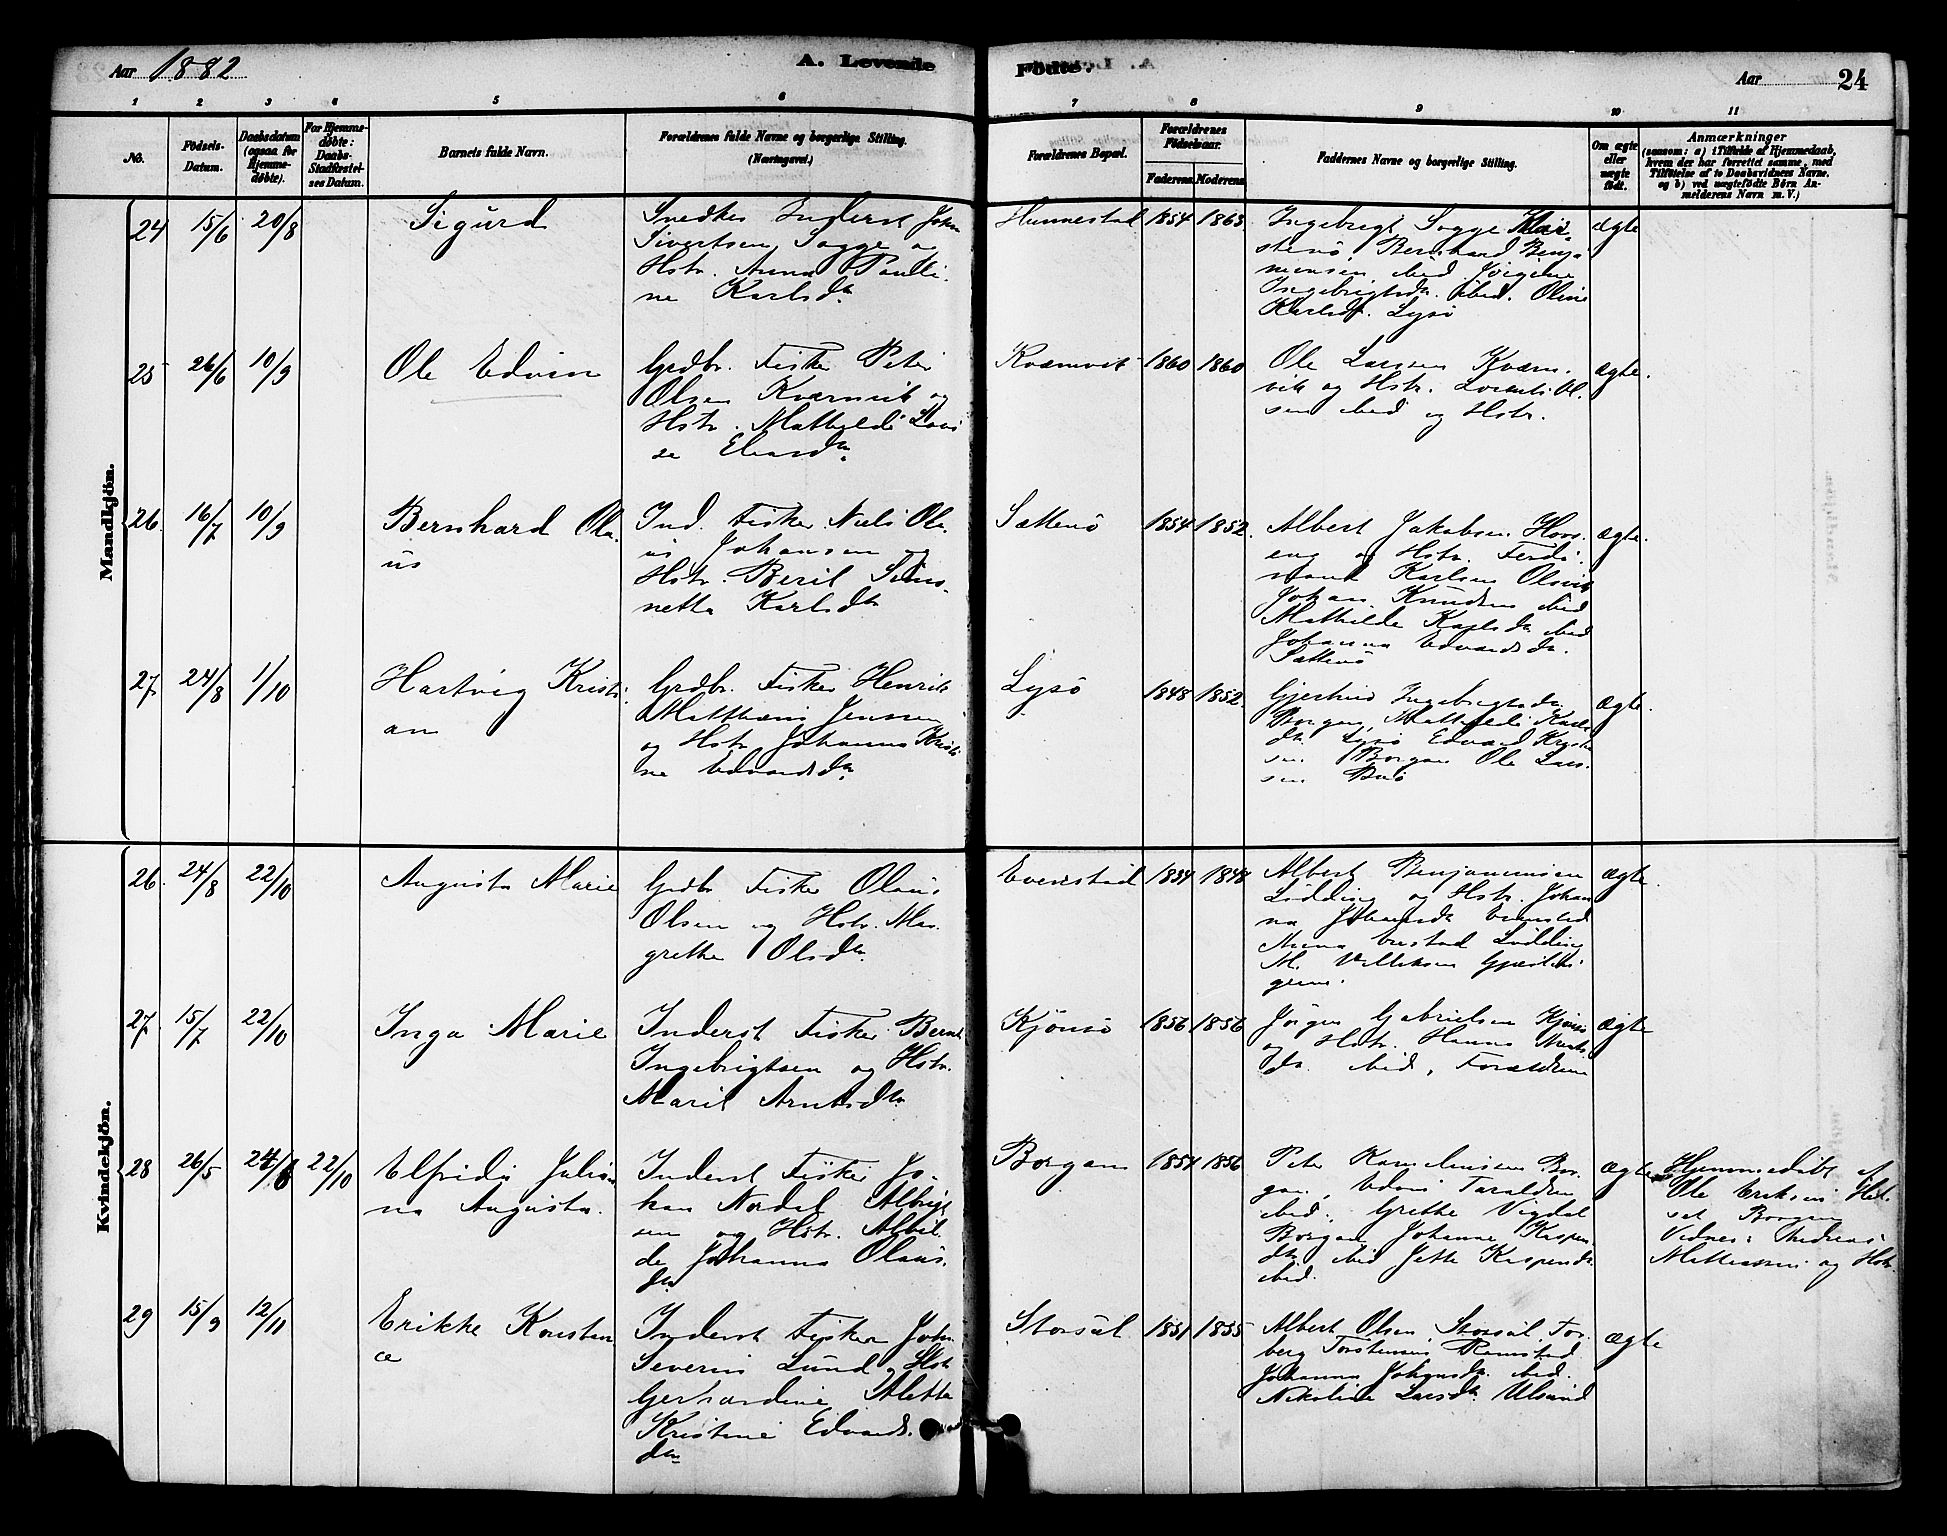 Aar 1882
A. Levende
Fødte.
Aar 24
1 2 3 4 5 6
7 8 9 10 11
No.
Födsels-
Datum.
Daabsdatum
(ogsaa for
Hjemme-
døbte).
For Hjemme-
døbte:
Daabs-
Stadfæstel-
ses Datum.
Barnets fulde Navn.
Forældrenes fulde Navne og borgerlige Stilling.
(Næringsvei.)
Forældrenes Bopæl.
Forældrenes
Fødselsaar.
Faderens Moderens
Faddernes Navne og borgerlige Stilling.
Om ægte
eller
uægte
født.
Anmærkninger
(saasom: a) i Tilfælde af Hjemmedaab,
hvem der har forrettet samme, med
Tilføielse af to Daabsvidners Navne.
og b) ved uægtefødte Børn An-
melderens Navn m. V.)
Mandkjön.
24 15/6 20/8
Sigurd
Snedker Inderst John
Sivertsen Sagge o
Hstr. Anna Pauli-
ne Karlsdtr
Hunnestad 1854 1863
Ingebrigt Sagge
Bernhard Benja
mensen ibid Jörgine
Ingebrigtsdtr. ibid. Oline
Karlsdtr. Lysö
ægte
25 26/6 10/9
Ole Edvin
Grdbr. Fisker Peter
Olsen Kværnvik og
Hstr. Mathilde Lovi
se Eliasdtr
Kværnvik 1860 1860
Ole Larsen Kværn-
vik og Hstr. Lorents Ol-
sen ibid og Hstr.
ægte.
26. 16/7 10/9
Bernhard Ola-
us
Ind. Fisker Niels Ola-
us Johansen og
Hstr. Beril
netta Karlsdtr
Sættenö 1854 1852.
Albert Jakobsen Hors-
eng og Hstr. Ferdi-
nand Karlsen Olsvik
Johan Knudsen ibid
Mathilde Karlsdtr ibid
Johanna Edvardsdtr.
Sættenö
ægte.
27. 24/8 1/10
Hartvig Kristi-
an
Grdbr. Fisker Henrik
Matthæus Jenssen
og Hstr Johanna Kristi
ne Edvardsdtr
Lysö 1848 1852
Gjertrud Ingebrigtsdtr
Borgan, Mathilde Karls
dtr Lysö Edvard
sen Borgan Ole Lars-
sen
ægte.
Kvindekjön.
26. 24/8 22/10
Augusta Marie
Grdbr Fisker Olaus
Olsen og Hstr. Mar-
grethe Olsdtr
Evenstad 1834 1848
Albert Benjaminsen
Lödding og Hstr. Johan
na Evenstad
Lödding
M. Villiksen
ægte.
27. 15/7 22/10
Inga Marie
Inderst Fisker Bernt
Ingebrigtsen og Hstr.
Marit Arntsdtr
Kjönsö 1856 1856
Jörgen Gabrielsen Kjönsö
og Hstr. Hanna
dtr. ibid, Forældrene
ægte
28 26/5 24/6 22/10
Elfrida Julian
na Augusta.
Inderst Fisker Jo-
han Nordal Albrigt
sen og Hstr. Albil-
de Johanna Olaus-
dtr
Borgan 1854 1856
Peter Kornelinssen Bor-
gan, Edvin Taraldsen
ibid; Grethe Vigdal
Borgan, Johanne Kaspers
dtr ibid Jette Kaspersdtr
ibid.
ægte
Hjemmedöbt af
Ole Eriksen
Borgan
Vidner: Andreas
Mathiassen og Hstr.
29 15/9 12/11
Erikke Konstan
ce
Inderst Fisker John
Severin Lund og Hstr
Gerhardine Aletta
Kristine Edvards-
dtr
Storsül 1851 1855
Albert Olsen Storsül. Tor-
berg Torstensen Ramstad
Johanna Johansdtr ibid.
Nikoline Larsdtr Ulsund
ægte